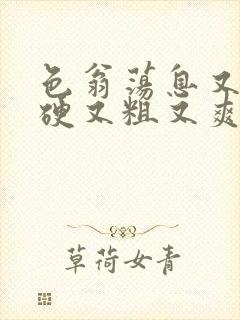 色翁荡息又
硬又粗又爽
草荷女青